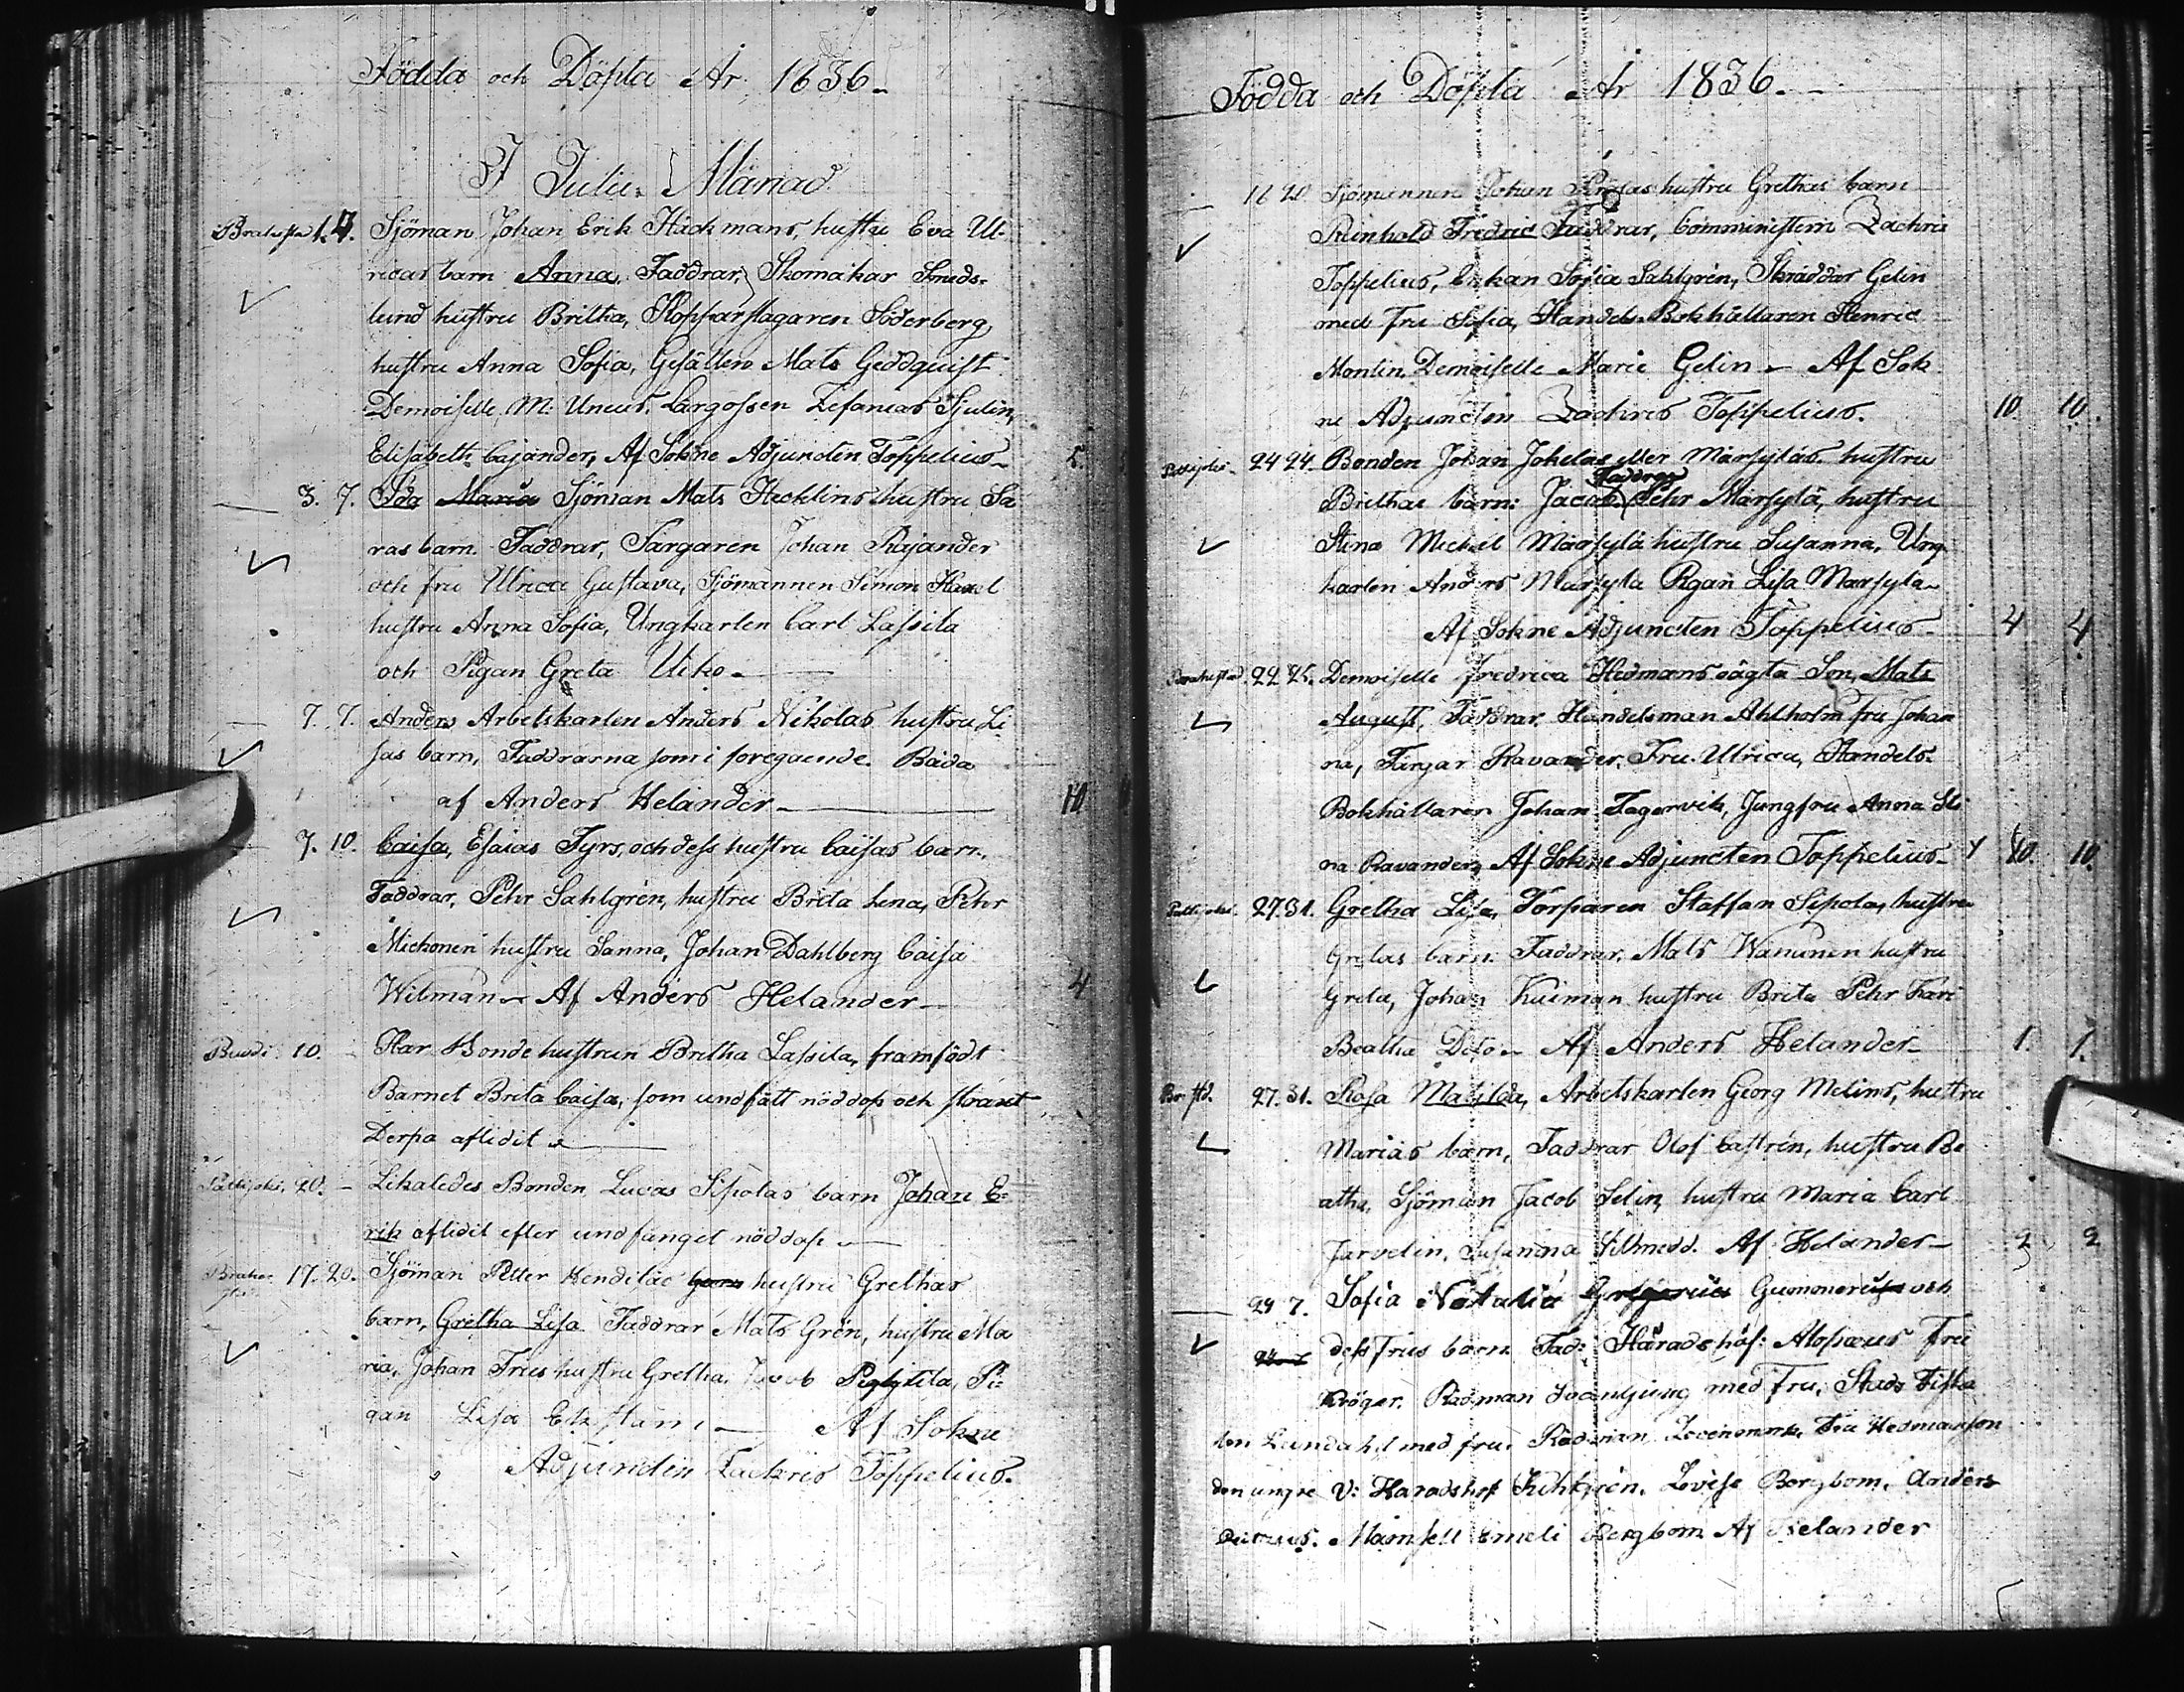 Födda och Döpta År 1836.
I Julii Månad
Brahesta 1. 4. Sjöman Johan Erik Häckmans, hustru Eva Ul-
ricas barn Anna, Faddrar, Skomakar Smeds-
lund hustru Britha, Kopparslagaren Söderberg,
hustru Anna Sofia, Gesällen Mats Geddquist
Demoiselle M: Uneus. Sjulin,
Elisabeth Cajander, Af Sokne Adjuncten Toppelius 5.
3. 7. Ida Maria Sjöman Mats Hecklins hustru Sa
ras barn Faddrar, Färgaren Johan Rajander
och fru Ulrica Gustava, Sjömannen Simon
hustru Anna Sofia, Ungkarlen Carl Lassila
och Pigan Greta Uiko
7. 7. Anders Arbetskarlen Anders Nikolas hustru Li
sas barn, Faddrarna som i foregaende. Båda
af Anders Helander 10
7. 10. Caisa, Esaias Fyrs, och dess hustru Caisas barn,
Faddrar, Pehr Sahlgrén, hustru Brita Lena, Pehr
Mickonen hustru Sanna, Johan Dahlberg Caisa
Wilman Af Anders Helander 4
10. Har Bonde hustrun Britha Lassila, framfödt
Barnet Brita Caisa, som undfått nöddop och straxt
Derpa aflidit
Pattijoki. 20. Likaledes Bonden Lucas Sipolas barn Johan E-
rik aflidit efter undfanget nöddop
Brahe- 17. 20. Sjöman Petter Hendilas barn hustru Grethas
stad
barn, Gretha Lisa Faddrar Mats Grön, hustru Ma
ria, Johan Fries hustru Gretha, Jacob Pi-
gan Lisa Af Sokne
Adjuncten Zachris Toppelius.
Födda och Döpta År 1836.
16 20. Sjömannen Johan hustru Grethas barn
Reinhold Fredric Faddrar, Comministern Zachris
Toppelius, Enkan Sofia Sahlgrén, Skräddar Gelin
med fru Sofia, Handels Bokhållaren Henric
Montin, Demoiselle Marie Gelin Af Sok
ne Adjuncten Zachris Toppelius. 10 10.
Pattijoki 24 24. Bonden Johan Jokelas eller Märsyläs hustru
Faddrar
Brithas barn: Jacob Pehr Marsylä, hustru
Stina Mickel Märsylä hustru Susanna, Ung
karlen Anders Marsyla Pigan Lisa Marsyla
Af Sokne Adjuncten Toppelius 4 4.
Brahestad. 22 25. Demoiselle Fredrica Hedmans oägta Son, Mats
August, Faddrar, Handelsman Ahlholm fru Johan
na, Färgar Ravander, Fru Ulrica, Handels-
Bokhållaren Johan Fagervik, Jungfru Anna Sti
na Ravander, Af Sokne Adjuncten Toppelius 10. 10.
Pattijoki 27. 31. Gretha Lisa, Torparen Staffan Sipolas hustru
Gretas barn Faddrar, Mats Wananen hustru
Greta, Johan Kuiman hustru Brita Pehr Kari
Beatha Dito Af Anders Helander 1. 1.
Br: std. 27. 31. Rosa Matilda, Arbetskarlen Georg Melins, hustru
Marias barn, Faddrar Olof Castrén, hustru Be
atha, Sjöman Jacob Selin, hustru Maria Carl
Jarvelin, Susanna Af Helander 2 2
29 7. Sofia Natalia Gummerus och
dess frus barn Fad: Häradshöf: Alopæus Fru
Kröger. Rådman Svanljung med Fru, Stads Fiska
len Lundahl med fru Rådman Fru Hedmanson
den ungre V: Haradshöf Lovise Bergbom, Anders
Mamsell Emeli Bergbom Af Helander